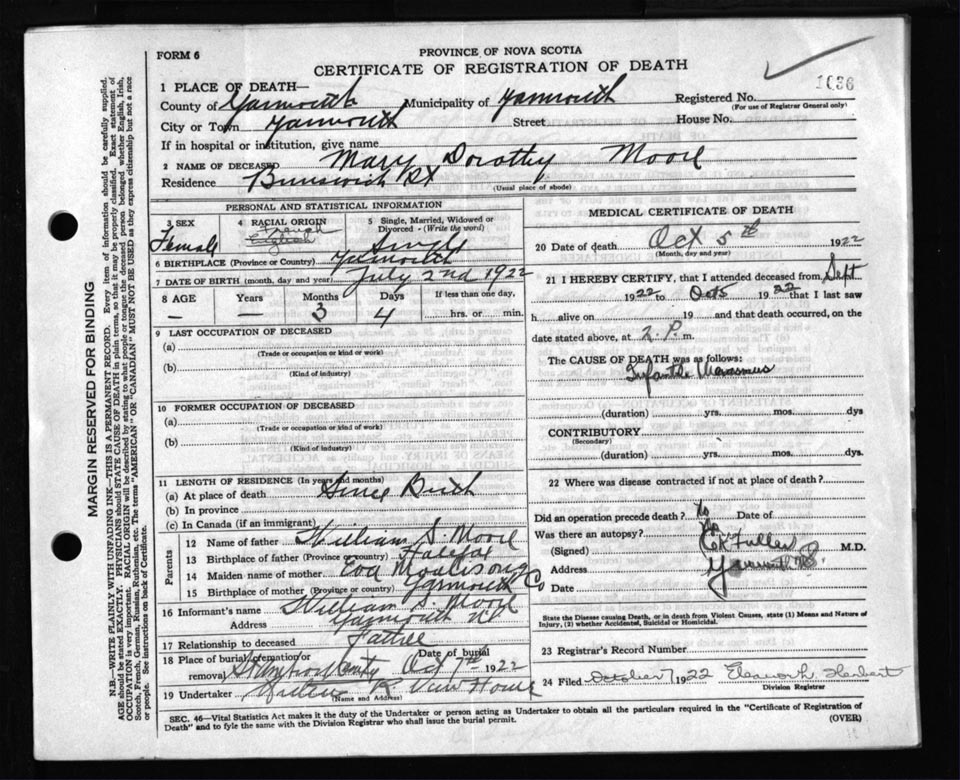 FORM 6
PROVINCE OF NOVA SCOTIA
CERTIFICATE OF REGISTRATION OF DEATH
1036
1 PLACE OF DEATH—
County of Yarmouth Municipality of Yarmouth Registered No.
(For use of Registrar General only)
City or Town Yarmouth Street House No.
If in hospital or institution, give name
2 NAME OF DECEASED Mary Dorothy Mood
Residence Brunswick St
(Usual place of abode)
PERSONAL AND STATISTICAL INFORMATION
3 SEX Female
4 RACIAL ORIGIN French English
5 Single, Married, Widowed or Divorced - (Write the word) Single
6 BIRTHPLACE (Province or Country) Yarmouth
7 DATE OF BIRTH (month, day and year) July 2nd 1922
8 AGE Years Months Days If less than one day,
— — 3 4 hrs. or min.
9 LAST OCCUPATION OF DECEASED
(a)
(Trade or occupation or kind or work)
(b)
(Kind of industry)
10 FORMER OCCUPATION OF DECEASED
(a)
(Trade or occupation or kind of work)
(b)
(Kind of industry)
11 LENGTH OF RESIDENCE (In years and months)
(a) At place of death Since Birth
(b) In province
(c) In Canada (if an immigrant)
Parents
12 Name of father William S. Mood
13 Birthplace of father (Province or country) Halifax
14 Maiden name of mother Eva
15 Birthplace of mother (Province or country) Yarmouth Co
16 Informant's name William S. Mood
Address Yarmouth NS
17 Relationship to deceased Father
18 Place of burial, cremation or removal Date of burial Oct 7th 1922
19 Undertaker R. Van Horne
(Name and Address)
MEDICAL CERTIFICATE OF DEATH
20 Date of death Oct 5th 1922
(Month, day and year)
21 I HEREBY CERTIFY, that I attended deceased from Sept
1922 to Oct 5 1922 that I last saw
h alive on 19 and that death occurred, on the
date stated above, at 2. P. m.
The CAUSE OF DEATH was as follows:
Infantile Marasmus
(duration) yrs. mos. dys
CONTRIBUTORY
(Secondary)
(duration) yrs. mos. dys.
22 Where was disease contracted if not at place of death?
Did an operation precede death? No Date of
Was there an autopsy? No
(Signed) Fuller M.D.
Address Yarmouth NS
Date
State the Disease causing Death, or in death from Violent Causes, state (1) Means and Nature of Injury, (2) whether Accidental, Suicidal or Homicidal.
23 Registrar's Record Number
24 Filed October 7 1922 Herbert
Division Registrar
SEC. 46—Vital Statistics Act makes it the duty of the Undertaker or person acting as Undertaker to obtain all the particulars required in the "Certificate of Registration of
Death" and to fyle the same with the Division Registrar who shall issue the burial permit.
(OVER)
MARGIN RESERVED FOR BINDING
N.B.—WRITE PLAINLY WITH UNFADING INK—THIS IS A PERMANENT RECORD. Every item of information should be carefully supplied.
AGE should be stated EXACTLY. PHYSICIANS should STATE CAUSE OF DEATH in plain terms, so that it may be properly classified. Exact statement of
OCCUPATION is very important. RACIAL ORIGIN will be described by stating to what people or tongue the deceased person belonged whether English, Irish,
Scotch, French, German, Russian, Ruthenian, etc. The terms "AMERICAN" or "CANADIAN" MUST NOT BE USED as they express citizenship but not a race
or people. See instructions on back of Certificate.